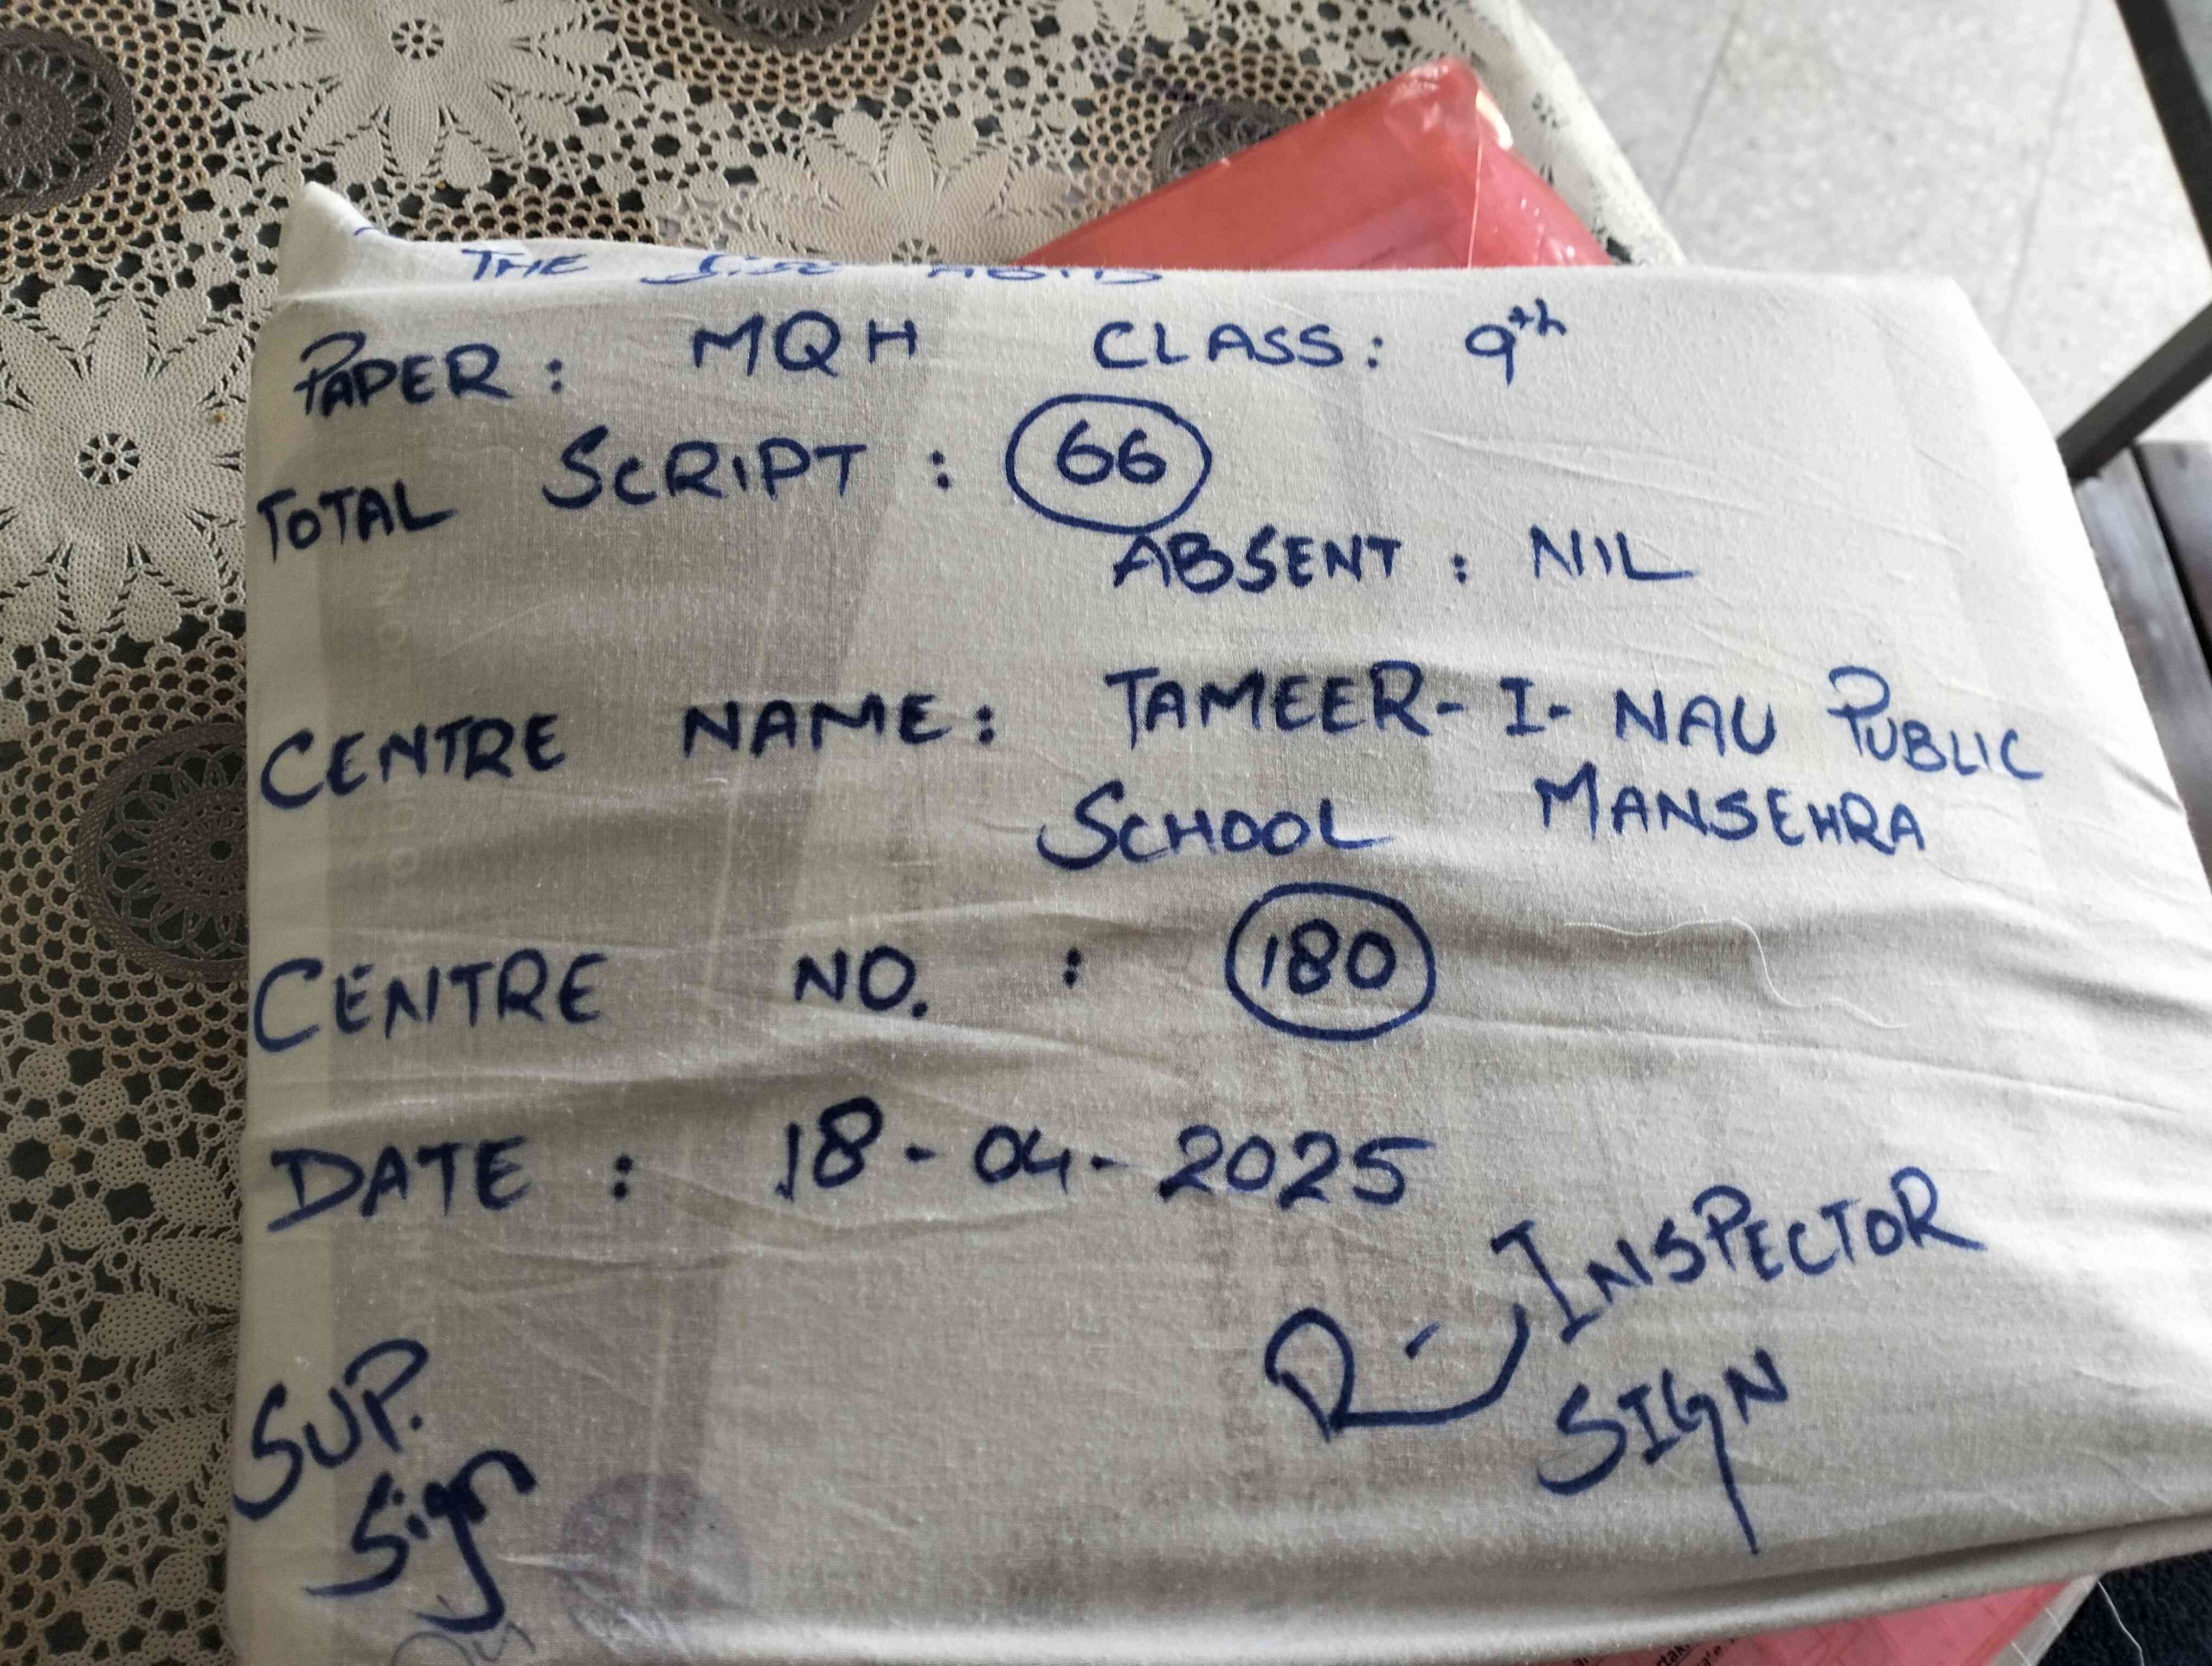 THE
PAPER: MQH CLASS: 9th
TOTAL SCRIPT: 66
ABSENT: NIL
CENTRE NAME: TAMEER-I-NAU PUBLIC
SCHOOL MANSEHRA
CENTRE NO. : 180
DATE: 18-04-2025
INSPECTOR
SIGN
SUP.
Sign